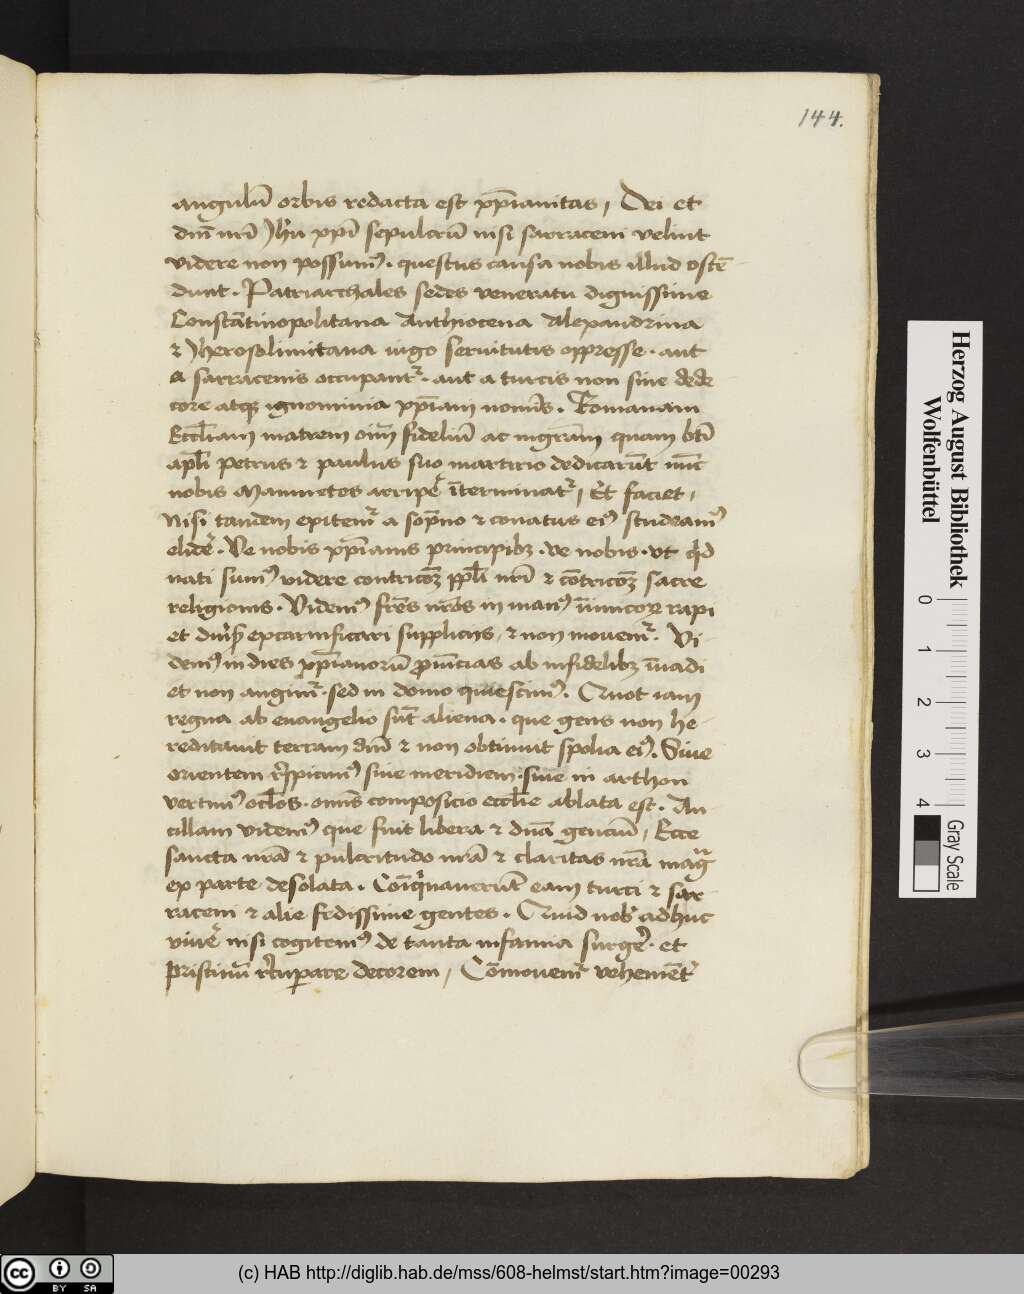 144.
angulū orbis redacta est xp̄ianitas, Dei et
dnī nrī Jhū xpī sepulcrū nisi sarraceni velint
videre non possum⁹. questus causa nobis illud ostē-
dunt. Patriarchales sedes veneratu dignissime
Constātinopolitana Anthiocena Alexandrina
⁊ Jherosolimitana iugo seruitutis oppresse. aut
a sarracenis occupant᷑. aut a turcis non sine dede
core atqꝫ ignominia xp̄iani nomīs. Romanam
Eccl̄iam matrem oīm̄ fideliū ac mgr̄am quam btī
apl̄i petrus ⁊ paulus suo martirio dedicarūt nūc
nobis Maumetes arripe᷑ īterminat᷑, Et faciet,
Nisi tandem exitem᷑ a sop̄no ⁊ conatus ei⁹ studeam⁹
elide᷑. Ve nobis xp̄ianis principibꝫ. ve nobis. vt qd
nati sum⁹ videre contricoꝫ ppl̄i nrī ⁊ cōtricoꝫ sacre
religionis. Videm⁹ frēs nrōs in man⁹ inimicoꝝ rapi
et diu᷑s excarnificari supplicijs, ⁊ non mouem᷑. Vi-
dem⁹ in dies xp̄ianorū ꝓuīcias ab infidelibꝫ īuadi
et non angim᷑. sed in domo quiescim⁹. Quot iam
regna ab euangelio sūt aliena. que gens non he-
reditauit terram dnī ⁊ non obtinuit spolia ei⁹. Siue
orientem r᷑spicim⁹ siue meridiem. siue in arthon
vertim⁹ ocl̄os. omīs composicio eccl̄ie ablata est. An-
cillam videm⁹ que fuit libera ⁊ dnā genciū, Ecce
sancta nrā ⁊ pulcritudo nrā ⁊ claritas nrā mag᷑
ex parte desolata. Coīq᷑nauerūt eam turci ⁊ sar
raceni ⁊ alie fedissime gentes. Quid nob᷒ adhuc
viue᷑ nisi cogitem⁹ de tanta infamia surge᷑. et
pristinū r᷑cuꝑare decorem, Cōmouem᷑ vehemēt᷑
Herzog August Bibliothek
Wolfenbüttel
0 1 2 3 4
Gray Scale
cc BY SA
(c) HAB http://diglib.hab.de/mss/608-helmst/start.htm?image=00293